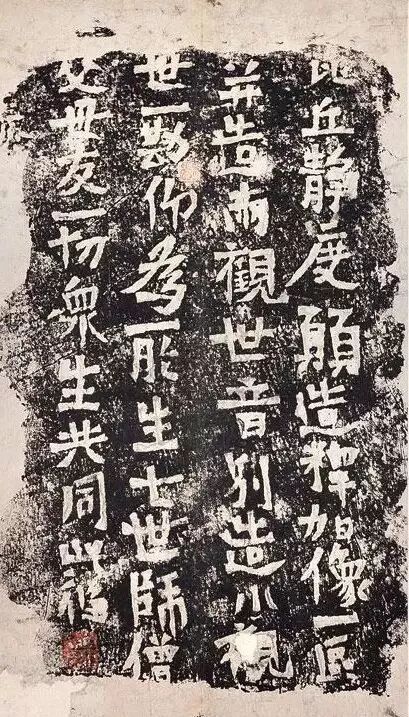 比丘靜度願造釋加像一區
并造兩觀世音別造小觀
世一勘仰為一所生七世師僧
父母及一切眾生共同此福